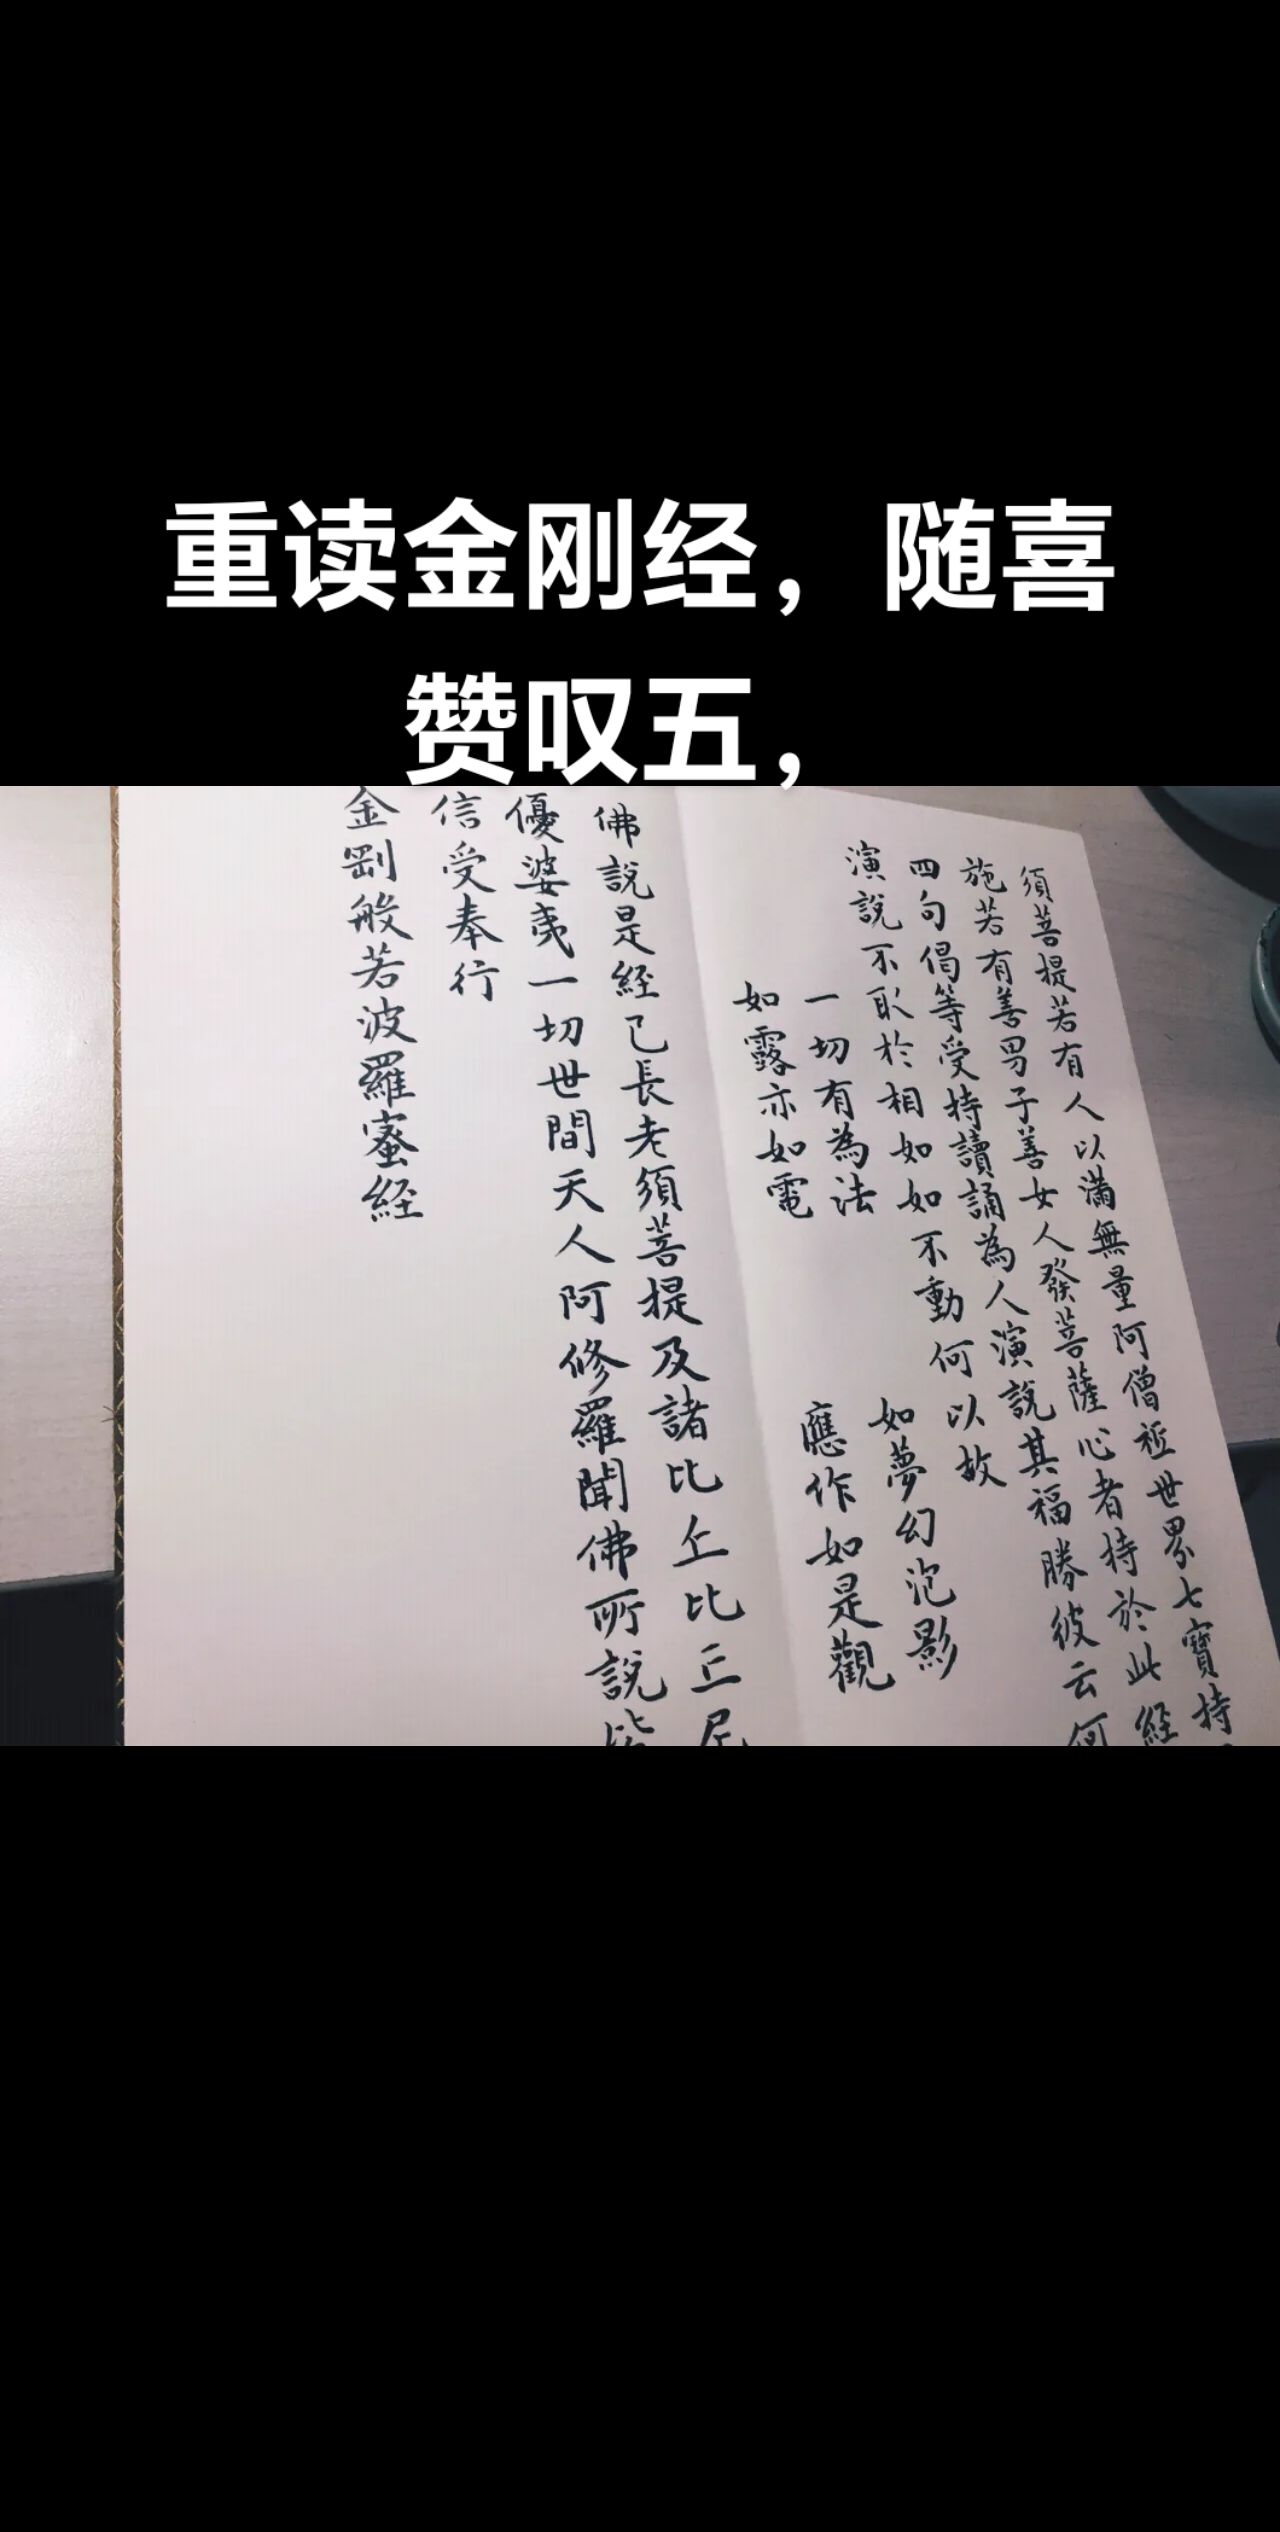 重读金刚经，随喜
赞叹五，
須菩提若有人以滿無量阿僧祇世界七寶持
施若有善男子善女人發菩薩心者持於此經
四句偈等受持讀誦為人演說其福勝彼云何
演說不取於相如如不動何以故
一切有為法 如夢幻泡影
如露亦如電 應作如是觀
佛說是經已長老須菩提及諸比丘比丘尼
優婆夷一切世間天人阿修羅聞佛所說皆
信受奉行
金剛般若波羅蜜經